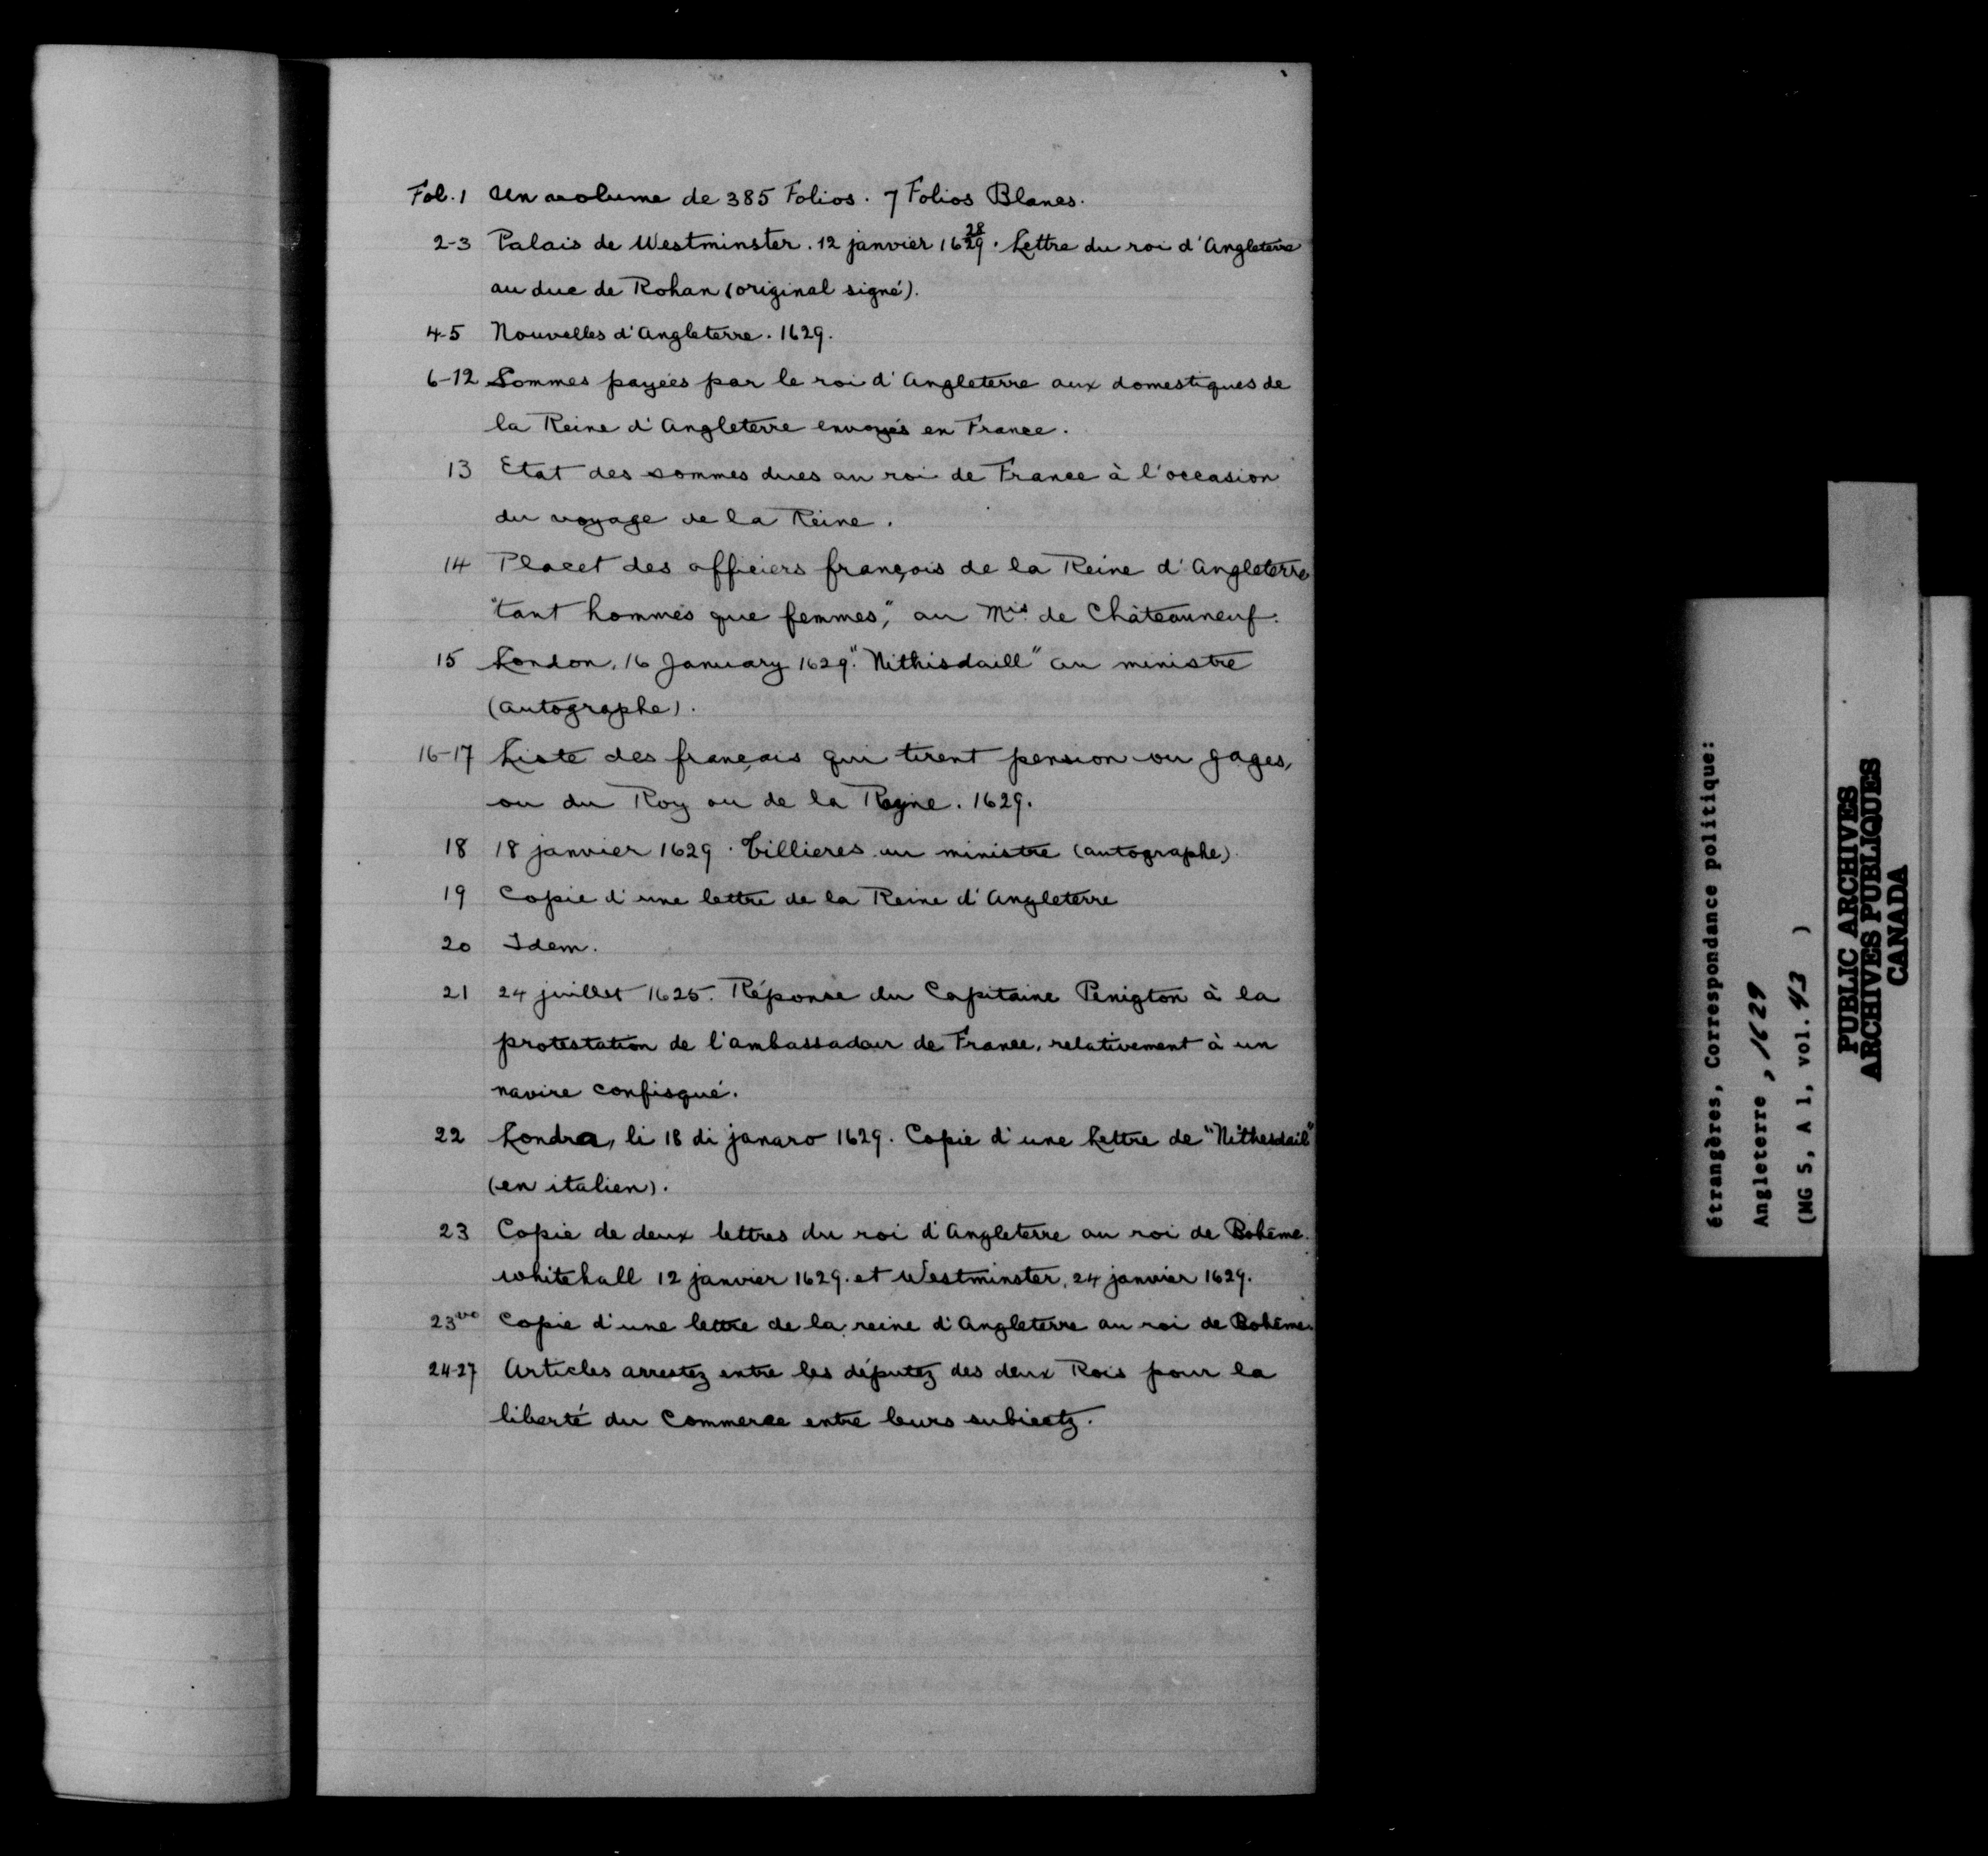 Fol. 1 Un volume de 385 Folios. 7 Folios Blancs.
2-3 Palais de Westminster. 12 janvier 16 28/29. Lettre du roi d'Angleterre
au duc de Rohan (original signé).
4-5 Nouvelles d'Angleterre. 1629.
6-12 Sommes payées par le roi d'Angleterre aux domestiques de
la Reine d'Angleterre envoyés en France.
13 Etat des sommes dues au roi de France à l'occasion
du voyage de la Reine.
14 Placet des officiers françois de la Reine d'Angleterre
"tant hommes que femmes," au Mis de Châteauneuf.
15 London, 16 January 1629. "Nithisdaill" au ministre
(autographe).
16-17 Liste des français qui tirent pension ou gages,
ou du Roy ou de la Royne. 1629.
18 18 janvier 1629. Tillieres au ministre (autographe).
19 Copie d'une lettre de la Reine d'Angleterre
20 Idem.
21 24 juillet 1625. Réponse du Capitaine Penigton à la
protestation de l'ambassadeur de France, relativement à un
navire confisqué.
22 Londra, li 18 di janaro 1629. Copie d'une Lettre de "Nithesdail"
(en italien).
23 Copie de deux lettres du roi d'Angleterre au roi de Bohême.
Whitehall 12 janvier 1629. et Westminster, 24 janvier 1629.
23vo Copie d'une lettre de la reine d'Angleterre au roi de Bohême.
24-27 Articles arrestez entre les députez des deux Rois pour la
liberté du Commerce entre leurs subiectz.
étrangères, Correspondance politique:
Angleterre, 1629
(MG 5, A 1, vol. 43 )
PUBLIC ARCHIVES
ARCHIVES PUBLIQUES
CANADA